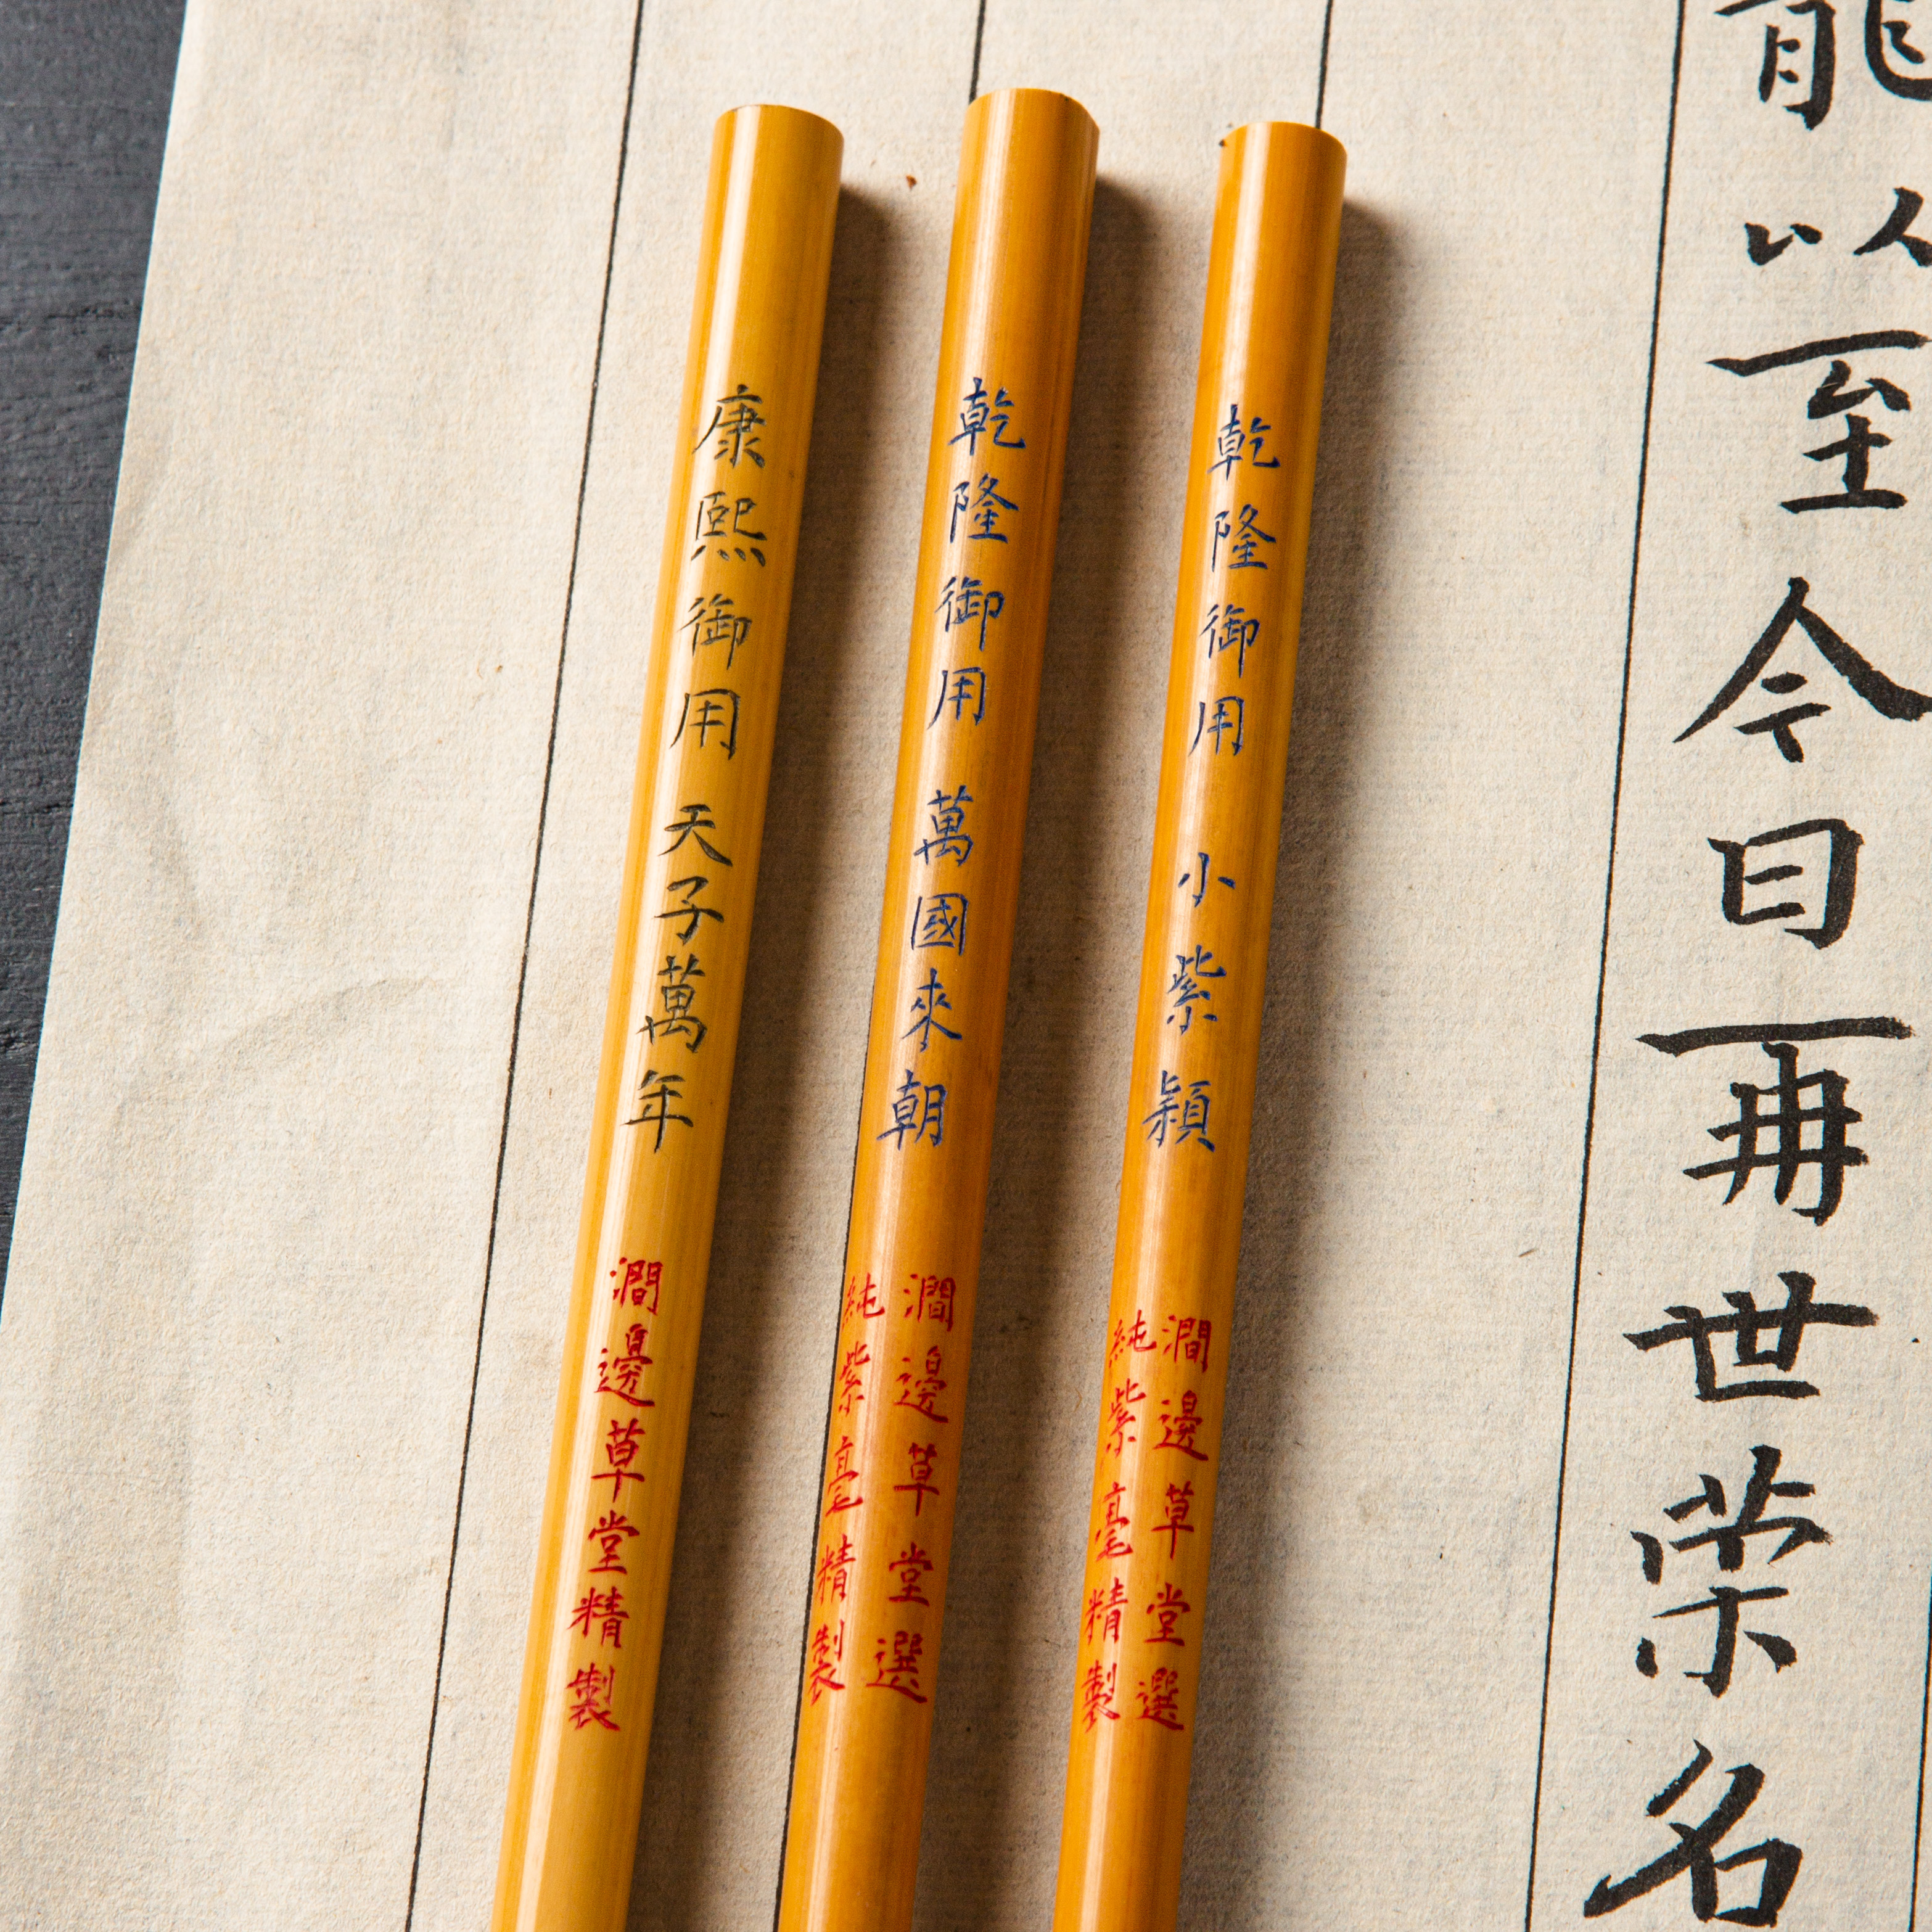 能以至今日再世荣名
乾隆御用 小紫穎
澗邊草堂選
純紫毫精製
乾隆御用 萬國來朝
澗邊草堂選
純紫毫精製
康熙御用 天子萬年
澗邊草堂精製